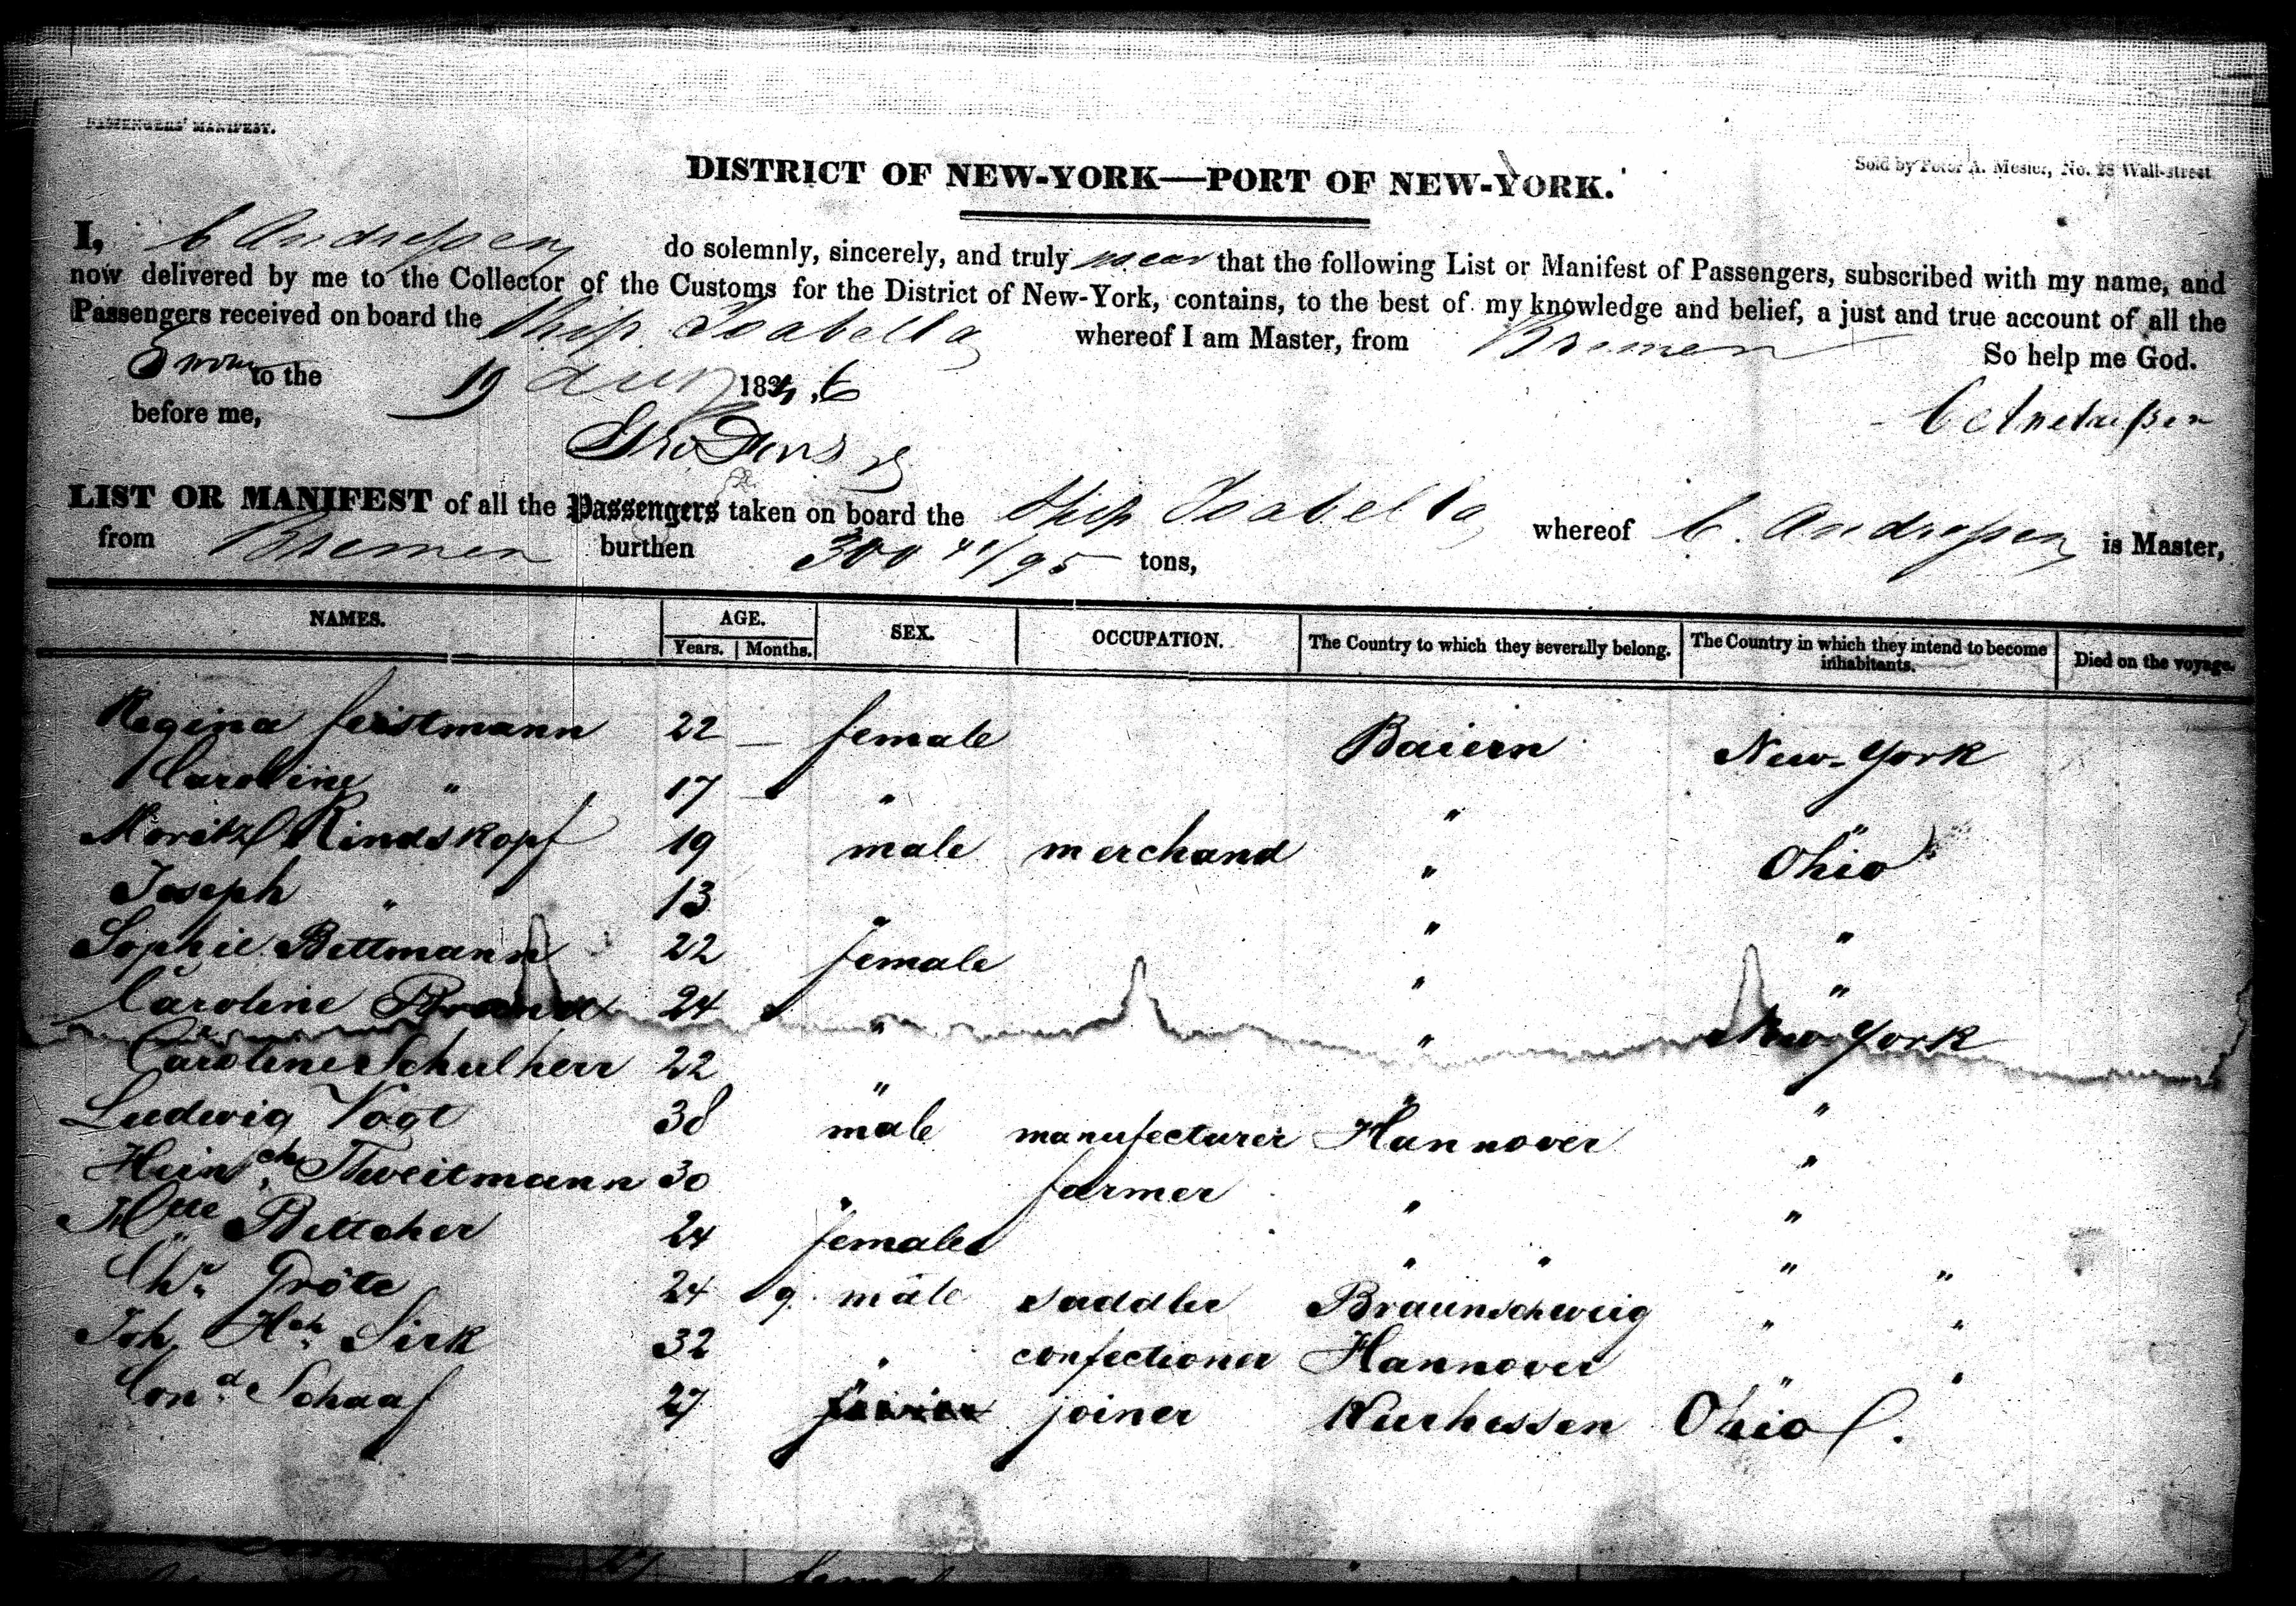 PASSENGERS' MANIFEST.
Sold by Peter A. Mesier, No. 28 Wall-street
DISTRICT OF NEW-YORK—PORT OF NEW-YORK.
I, C Andressen do solemnly, sincerely, and truly swear that the following List or Manifest of Passengers, subscribed with my name, and
now delivered by me to the Collector of the Customs for the District of New-York, contains, to the best of my knowledge and belief, a just and true account of all the
Passengers received on board the Ship Isabella whereof I am Master, from Bremen
So help me God.
Sworn to the 19 Aug 1846
before me,
C Andreßen
LIST OR MANIFEST of all the Passengers taken on board the Ship Isabella whereof C. Andressen is Master,
from Bremen burthen 300 41/95 tons,
NAMES. AGE. SEX. OCCUPATION. The Country to which they severally belong. The Country in which they intend to become inhabitants. Died on the voyage.
Years. Months.
Regina feistmann 22 — female Baiern New-York
Caroline " 17 " " "
Moritz Rindskopf 19 male merchand " Ohio
Joseph " 13 " " "
Sophie Bettmann 22 female " "
Caroline 24 " " New York
Caroline Schulherr 22 " " "
Ludwig Vogt 38 male manufecturer Hannover "
Heinch Tweitmann 30 " farmer " "
Mtte Bettcher 24 female " " " "
Chr. Gröte 24 9 male saddler Braunschweig " "
Joh. Hch Sirk 32 " confectioner Hannover " "
Cond Schaaf 27 joiner Kurhessen Ohio